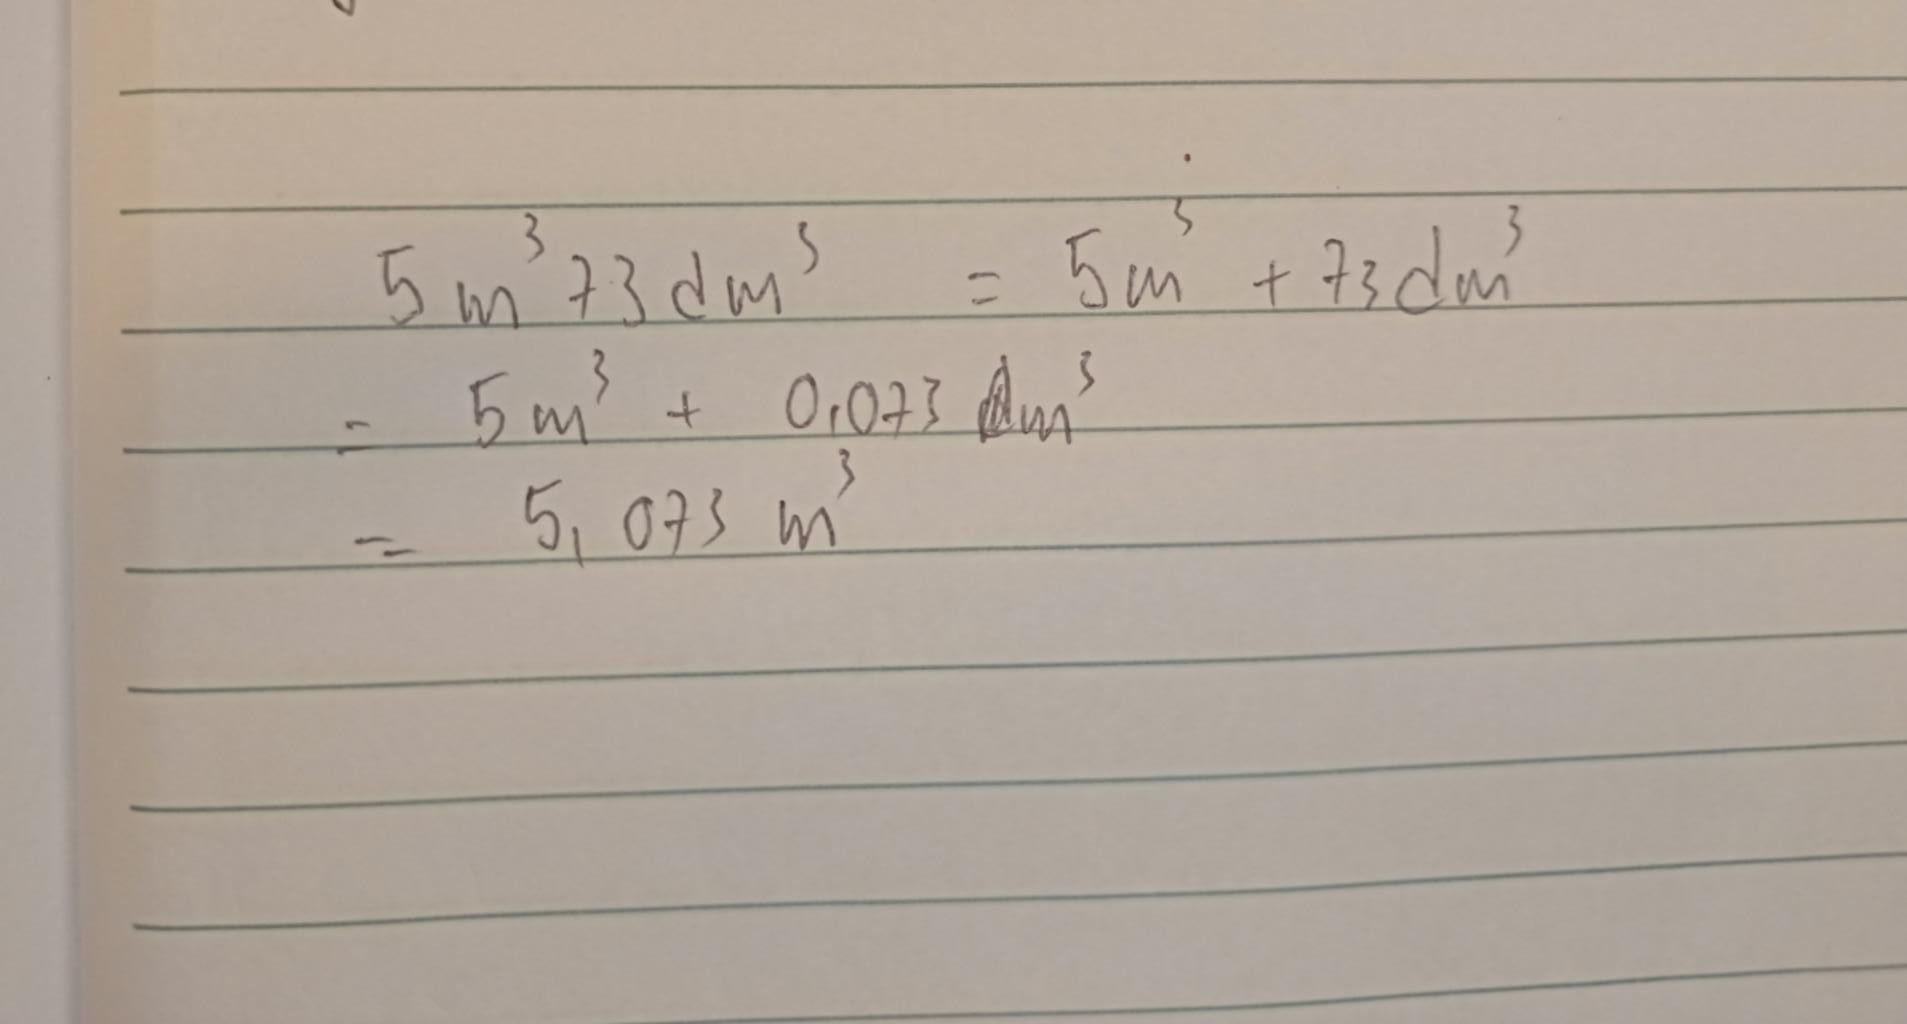 5 m³ 73 dm³ = 5 m³ + 73 dm³
= 5 m³ + 0,073 dm³
= 5,073 m³